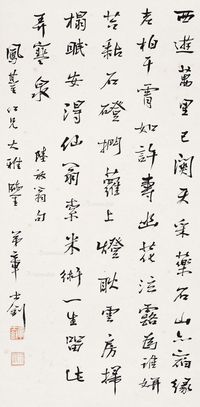 西遊萬里已關天采藥名山亦宿緣
老柏干霄如許壽幽花泣露為誰妍
苔黏石磴捫蘿上燈耿雲房掃
榻眠安得仙翁索米術一生留此
弄寒泉 陸放翁句
鳳薹仁兄大雅鑒 弟章士釗